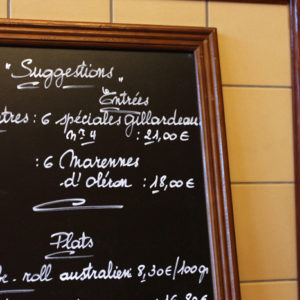 "Suggestions"
Entrées
tres : 6 spéciales Gillardeau
n° 4 : 21,00 €
: 6 Marennes
d'oléron : 18,00 €
Plats
roll australien 8,30€/100g